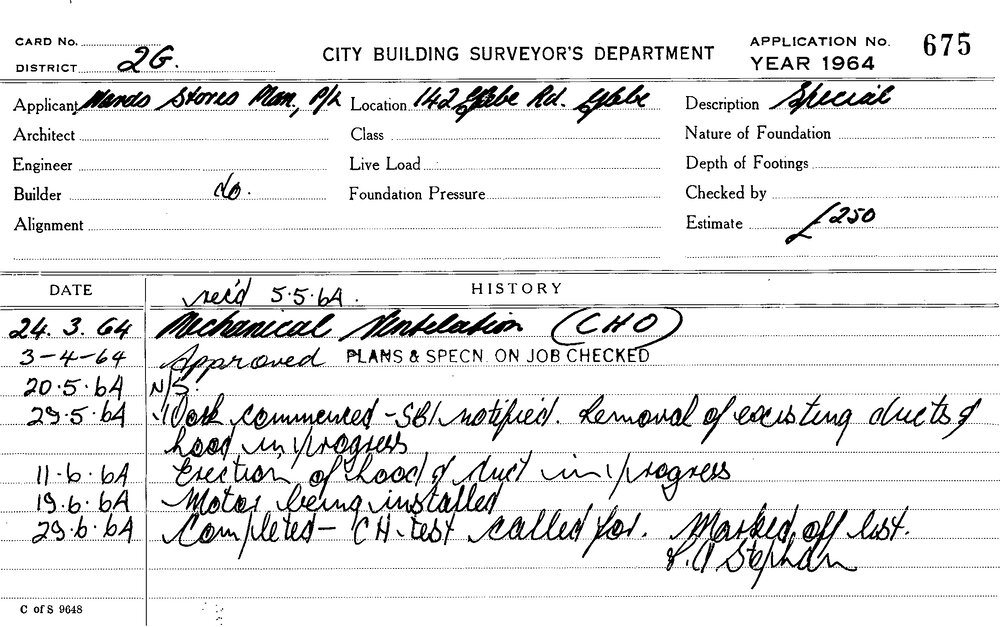 CARD No.
DISTRICT 2G.
CITY BUILDING SURVEYOR'S DEPARTMENT
APPLICATION No. 675
YEAR 1964
Applicant Stores P/L Location 142 Glebe Rd. Glebe Description Special
Architect Class Nature of Foundation
Engineer Live Load Depth of Footings
Builder do. Foundation Pressure Checked by
Alignment Estimate £250
DATE HISTORY
rec'd 5.5.64.
24.3.64 Mechanical Ventilation (CHO)
3-4-64 Approved PLANS & SPECN. ON JOB CHECKED
20.5.64 N/S.
29.5.64 Work commenced - SBI notified. Removal of existing ducts &
hood in progress
11.6.64 Erection of hood & duct in progress
19.6.64 Motor being installed
29.6.64 Completed - CH. test called for. Marked off list.
Stephan
C of S 9648